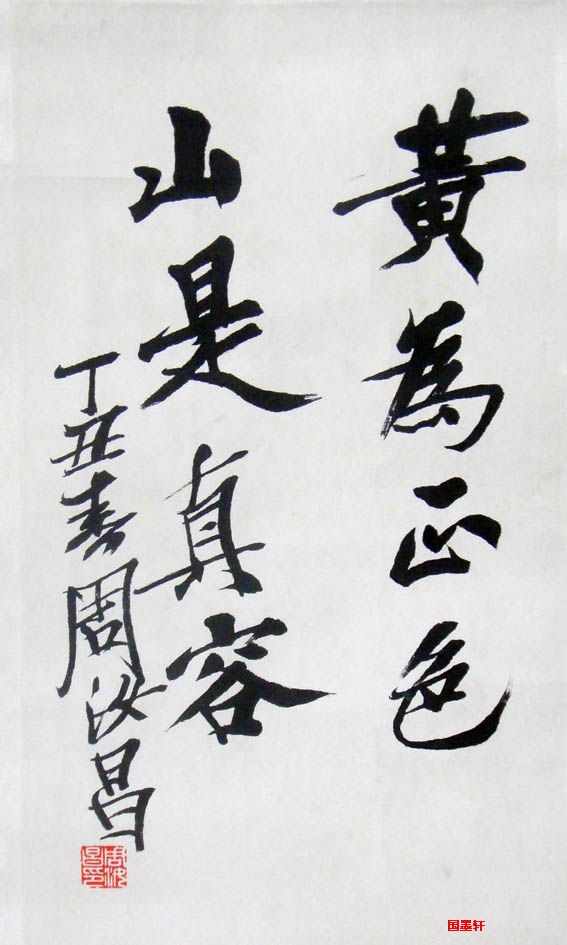 黃為正色
山是真容
丁丑春周汝昌
周汝昌印
国墨轩